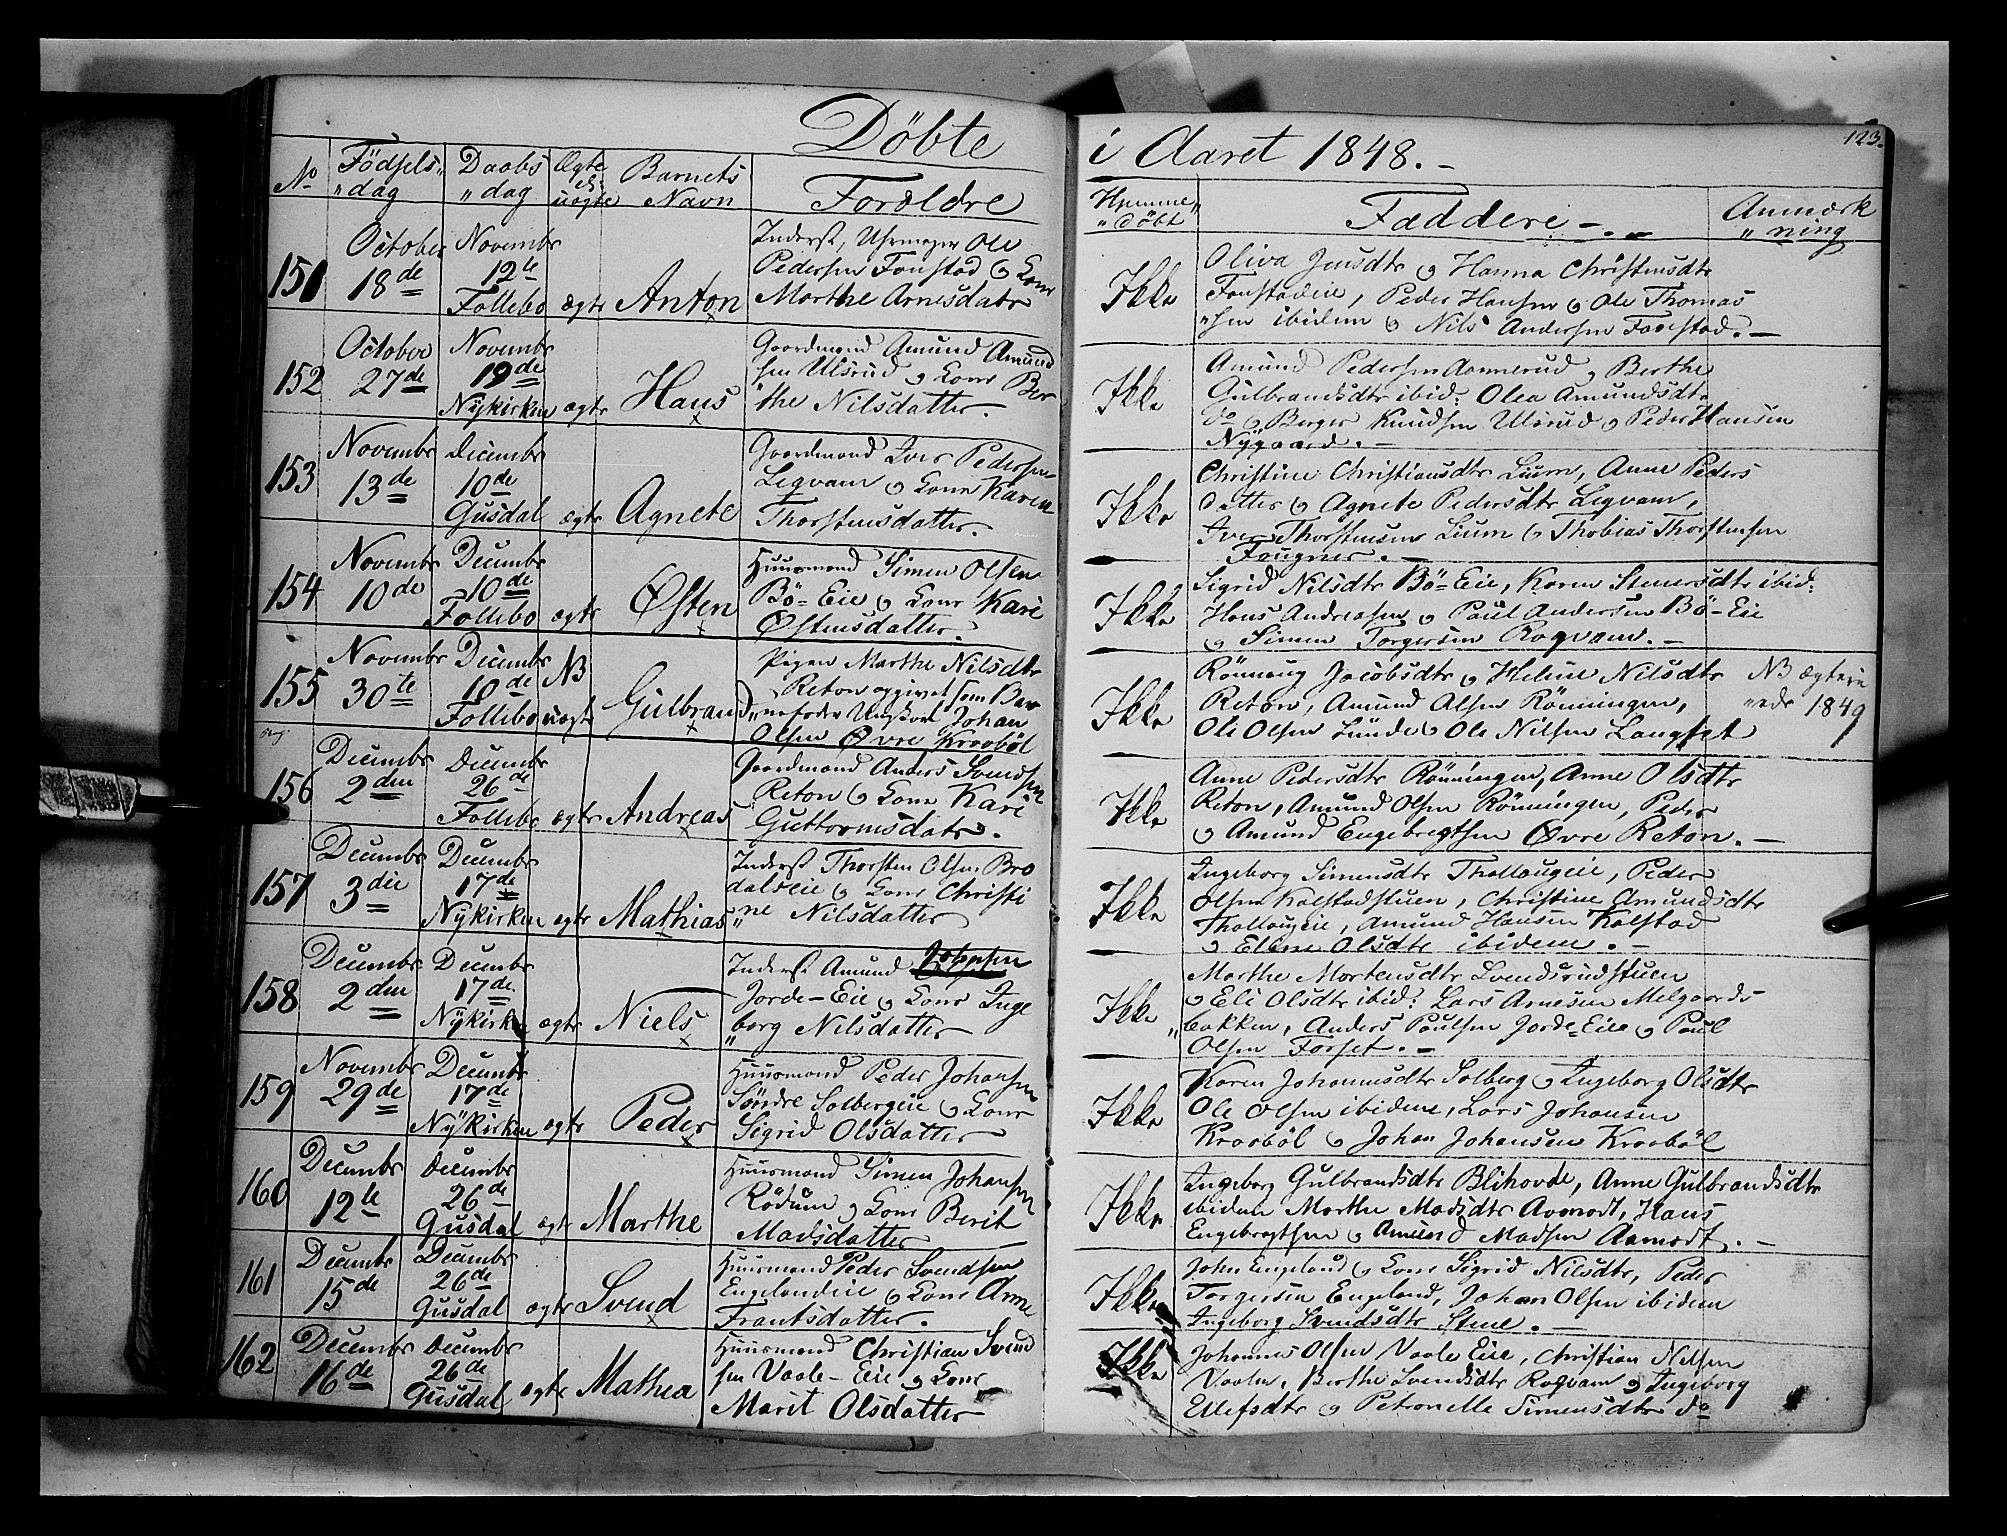 Döbte
i Aaret 1848.-
123.
No
Födsels„
„dag
Daabs
„dag
Ægte
el
uægte
Barnets
Navn
Forældre
Hjemme„
„döbt
Faddere
Anmærk
„ning
151
October
18de
Novembr
12te
Follebo
ægte
Anton
Inderst, Uhrmager Ole
Pedersen Fonstad og Kone
Marthe Arnesdatr
Ikke
Oliva Jensdtr og Hanna Christensdtr
Fonstadeie, Peder Hansen og Ole Thomas
„sen ibidem og Nils Andersen Fonstad.-
152
October
27de
Novembr
19de
Nykirken
ægte
Hans
Gaardmand Amund Amund
sen Ulsrud og Kone Ber
„the Nilsdatter.
Ikke
Amund Pedersen Aannerud og Berthe
Gulbrandsdtr ibid: Olea Amundsdtr
do og Berger Knudsen Ulsrud og Peder Hansen
Nygaard.-
153
Novembr
13de
Decembr
10de
Gusdal
ægte
Agnete
Gaardmand Iver Pedersen
Legvam og Kone Karen
Thorstensdatter.
Ikke
Christine Christiansdtr Lium, Anne Peders
datter og Agnete Pedersdtr Legvam,
Iver Thorstensen Lium og Thobias Thorstensen
Fougner.-
154
Novembr
10de
Decembr
10de
Follebo
ægte
Østen
Huusmand Simen Olsen
Bö-Eie og Kone Kari
Østensdatter.
Ikke
Sigrid Nilsdtr Bö-Eie, Karen Stenersdtr ibid:
Hans Andreasen og Paul Andersen Bö-Eie
og Simen Torgersen Rogvam.-
155
Novembr
30te
Decembr
10de
Follebo
NB
uægte
Gulbrand
Pigen Marthe Nilsdtr
Reton opgivet som Bar
„nefader Ungkarl Johan
Olsen Øvre Kraabøl
Ikke
Rönnaug Jacobsdtr og Helene Nilsdtr
Reton, Amund Olsen Rönningen,
Ole Olsen Lunde og Ole Nilsen Langset
NB ægtevi
„ede 1849
156
Decembr
2den
Decembr
26de
Follebo
ægte
Andreas
Gaardmand Anders Svendsen
Reton og Kone Kari
Guttormsdatr.
Ikke
Anne Pedersdtr Rönningen, Anne Olsdtr
Reton, Amund Olsen Rönningen, Peder
og Amund Engebregtsen Øvre Reton.-
157
Decembr
3die
Decembr
17de
Nykirken
ægte
Mathias
Inderst Thorsten Olsen Bro
dalseie og Kone Christi
„ne Nilsdatter
Ikke
Ingeborg Simensdtr Thollaugeie, Peder
Olsen Kalstadstuen, Christine Amundsdtr
Thollaugeie, Amund Hansen Kalstad
og Eline Olsdtr ibidem.-
158
Decembr
2den
Decembr
17de
Nykirken
ægte
Niels
Inderst Amund Johnsen
Jorde-Eie og Kone Inge
„borg Nilsdatter
Ikke
Marthe Mortensdtr Svendsrudstuen
og Eli Olsdtr ibid: Lars Arnesen Melgaards
„bakken, Anders Paulsen Jorde-Eie og Paul
Olsen Forset.-
159
Novembr
29de
Decembr
17de
Nykirken
ægte
Peder
Huusmand Peder Johansen
Söndre Solbergeie og Kone
Sigrid Olsdatter
Ikke
Karen Johannesdtr Solberg og Ingeborg Olsdtr
Ole Olsen ibidem, Lars Johansen
Kraaböl og Johan Johansen Kraaböl
160
Decembr
12te
Decembr
26de
Gusdal
ægte
Marthe
Huusmand Simen Johansen
Rödum og Kone Berit
Madsdatter
Ikke
Ingeborg Gulbrandsdtr Blihovde, Anne Gulbrandsdtr
ibidem Marthe Madsdtr Aamodt, Hans
Engebregtsen og Amund Madsen Aamodt.-
161
Decembr
15de
Decembr
26de
Gusdal
ægte
Svend
Huusmand Peder Svendsen
Engelandeie og Kone Anne
Frantsdatter.
Ikke
John Engeland og Kone Sigrid Nilsdtr, Peder
Torgersen Engeland, Johan Olsen ibidem
Ingeborg Svendsdtr Stene.-
162
Decembr
16de
Decembr
26de
Gusdal
ægte
Mathea
Huusmand Christian Svend
sen Vaale-Eie og Kone
Marit Olsdatter
Ikke
Johannes Olsen Vaale Eie, Christian Nilsen
Vaalen, Berthe Svendsdtr Rogvam og Ingeborg
Ellefsdtr og Petronelle Simensdtr do